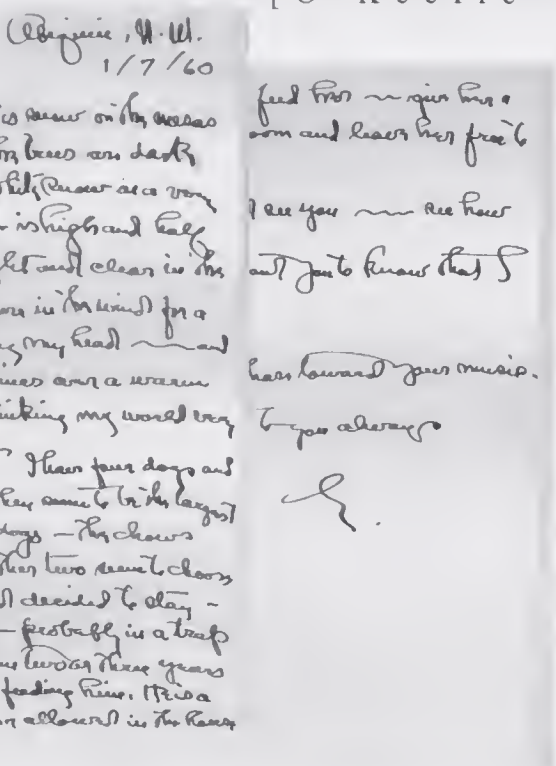 Abiquiu, N.M.
1/7/60
is snow on the mesas
trees are dark
snow as a very
is high and half
and clear in the
in the wind for a
my head — and
over a warm
my world very
I have four dogs and
They seem to be the largest
dogs — the chows
two seem to choose
decided to stay —
— probably in a trap
two or three years
feeding him. He is a
allowed in the house
feed her — give her a
room and leave her free to
I see you — see how
you to know that I
have toward your music.
to you always
G.